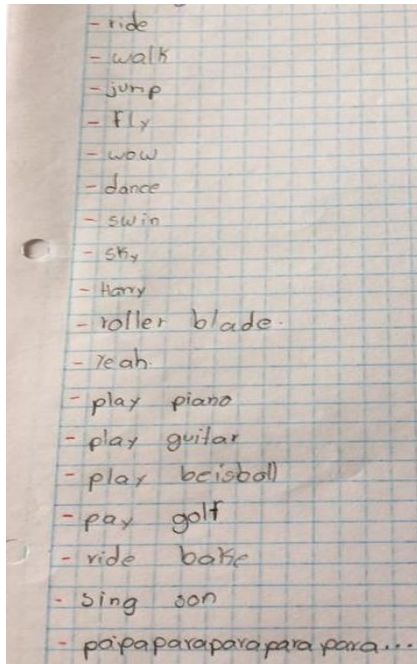 - ride
- walk
- jump
- Fly
- wow
- dance
- swin
- sky
- Harry
- roller blade.
- Yeah.
- play piano
- play guitar
- play beisboll
- pay golf
- ride bake
- sing son
- papaparaparapara para...